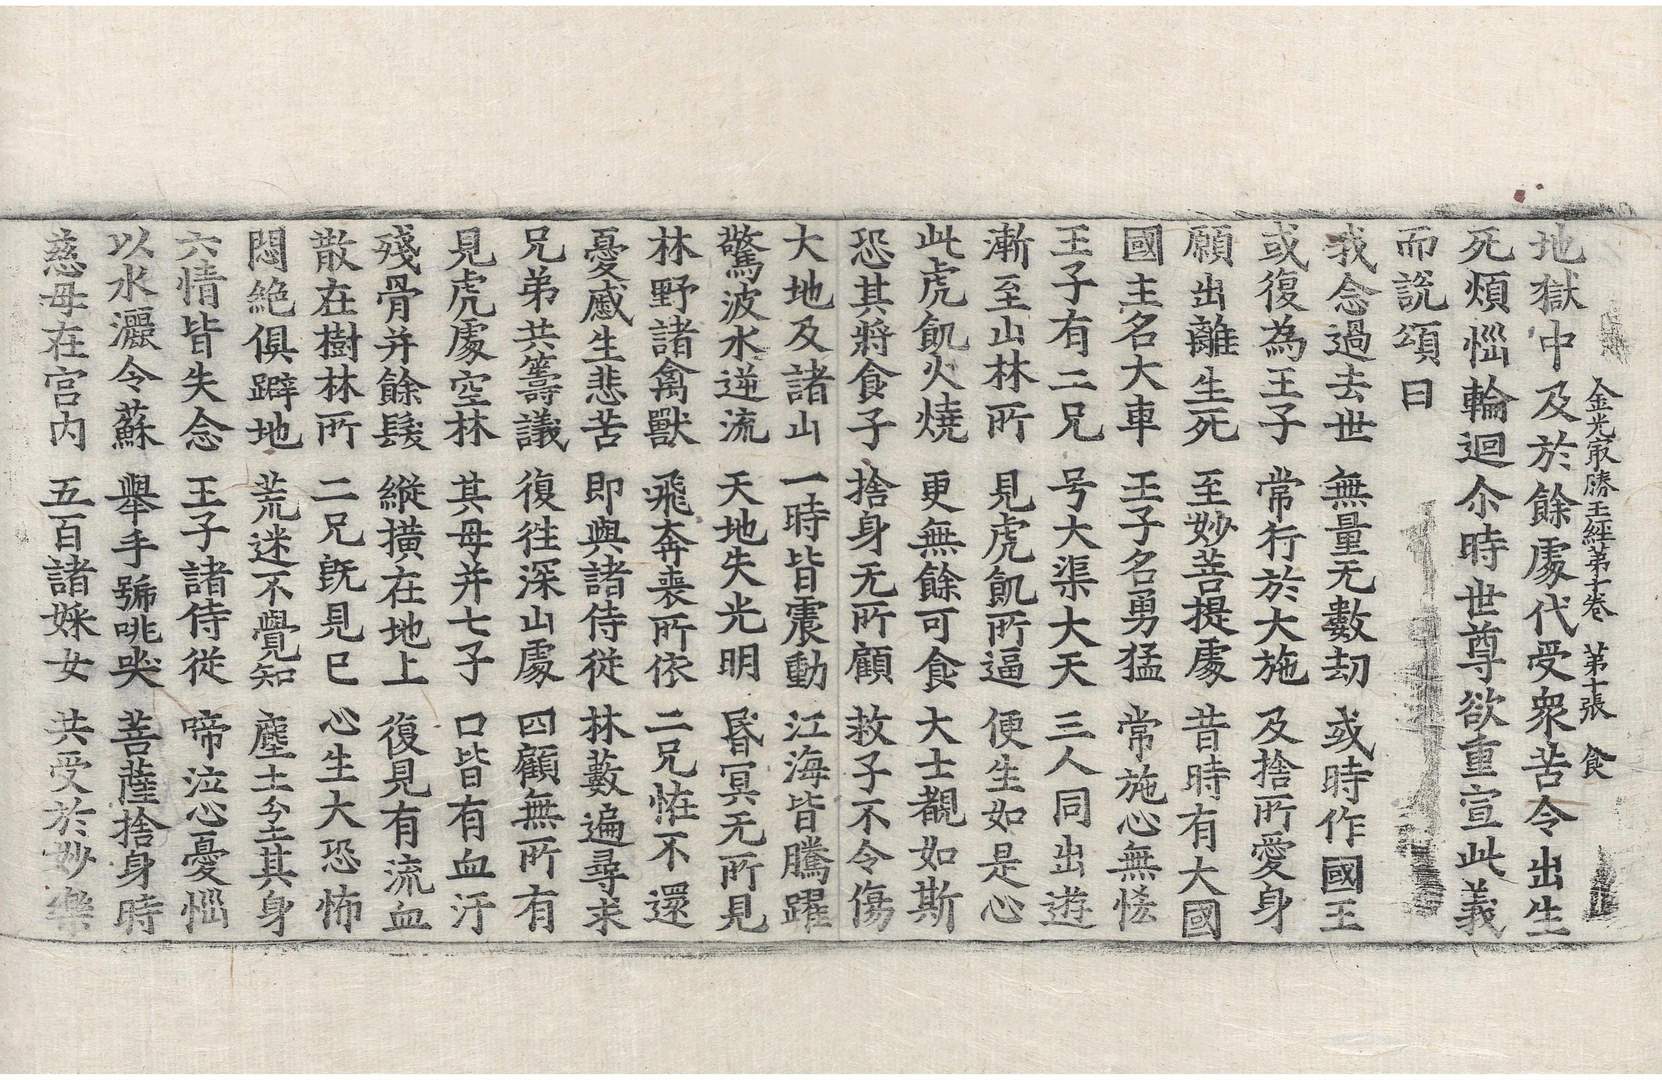 金光㝡勝王經第十卷　第十張　食
地獄中及於餘處代受衆苦令出生
死煩惱輪迴尒時世尊欲重宣此義
而說頌曰
我念過去世　無量无數劫　或時作國王
或復為王子　常行於大施　及捨所愛身
願出離生死　至妙菩提處　昔時有大國
國主名大車　王子名勇猛　常施心無恡
王子有二兄　号大渠大天　三人同出遊
漸至山林所　見虎飢所逼　便生如是心
此虎飢火燒　更無餘可食　大士覩如斯
恐其將食子　捨身无所顧　救子不令傷
大地及諸山　一時皆震動　江海皆騰躍
驚波水逆流　天地失光明　昏冥无所見
林野諸禽獸　飛奔喪所依　二兄恠不還
憂慼生悲苦　即與諸侍從　林藪遍尋求
兄弟共籌議　復往深山處　四顧無所有
見虎處空林　其母并七子　口皆有血汙
殘骨并餘髮　縱橫在地上　復見有流血
散在樹林所　二兄旣見已　心生大恐怖
悶絶俱躃地　荒迷不覺知　塵土坌其身
六情皆失念　王子諸侍從　啼泣心憂惱
以水灑令蘇　舉手號咷哭　菩薩捨身時
慈母在宮內　五百諸婇女　共受於妙樂